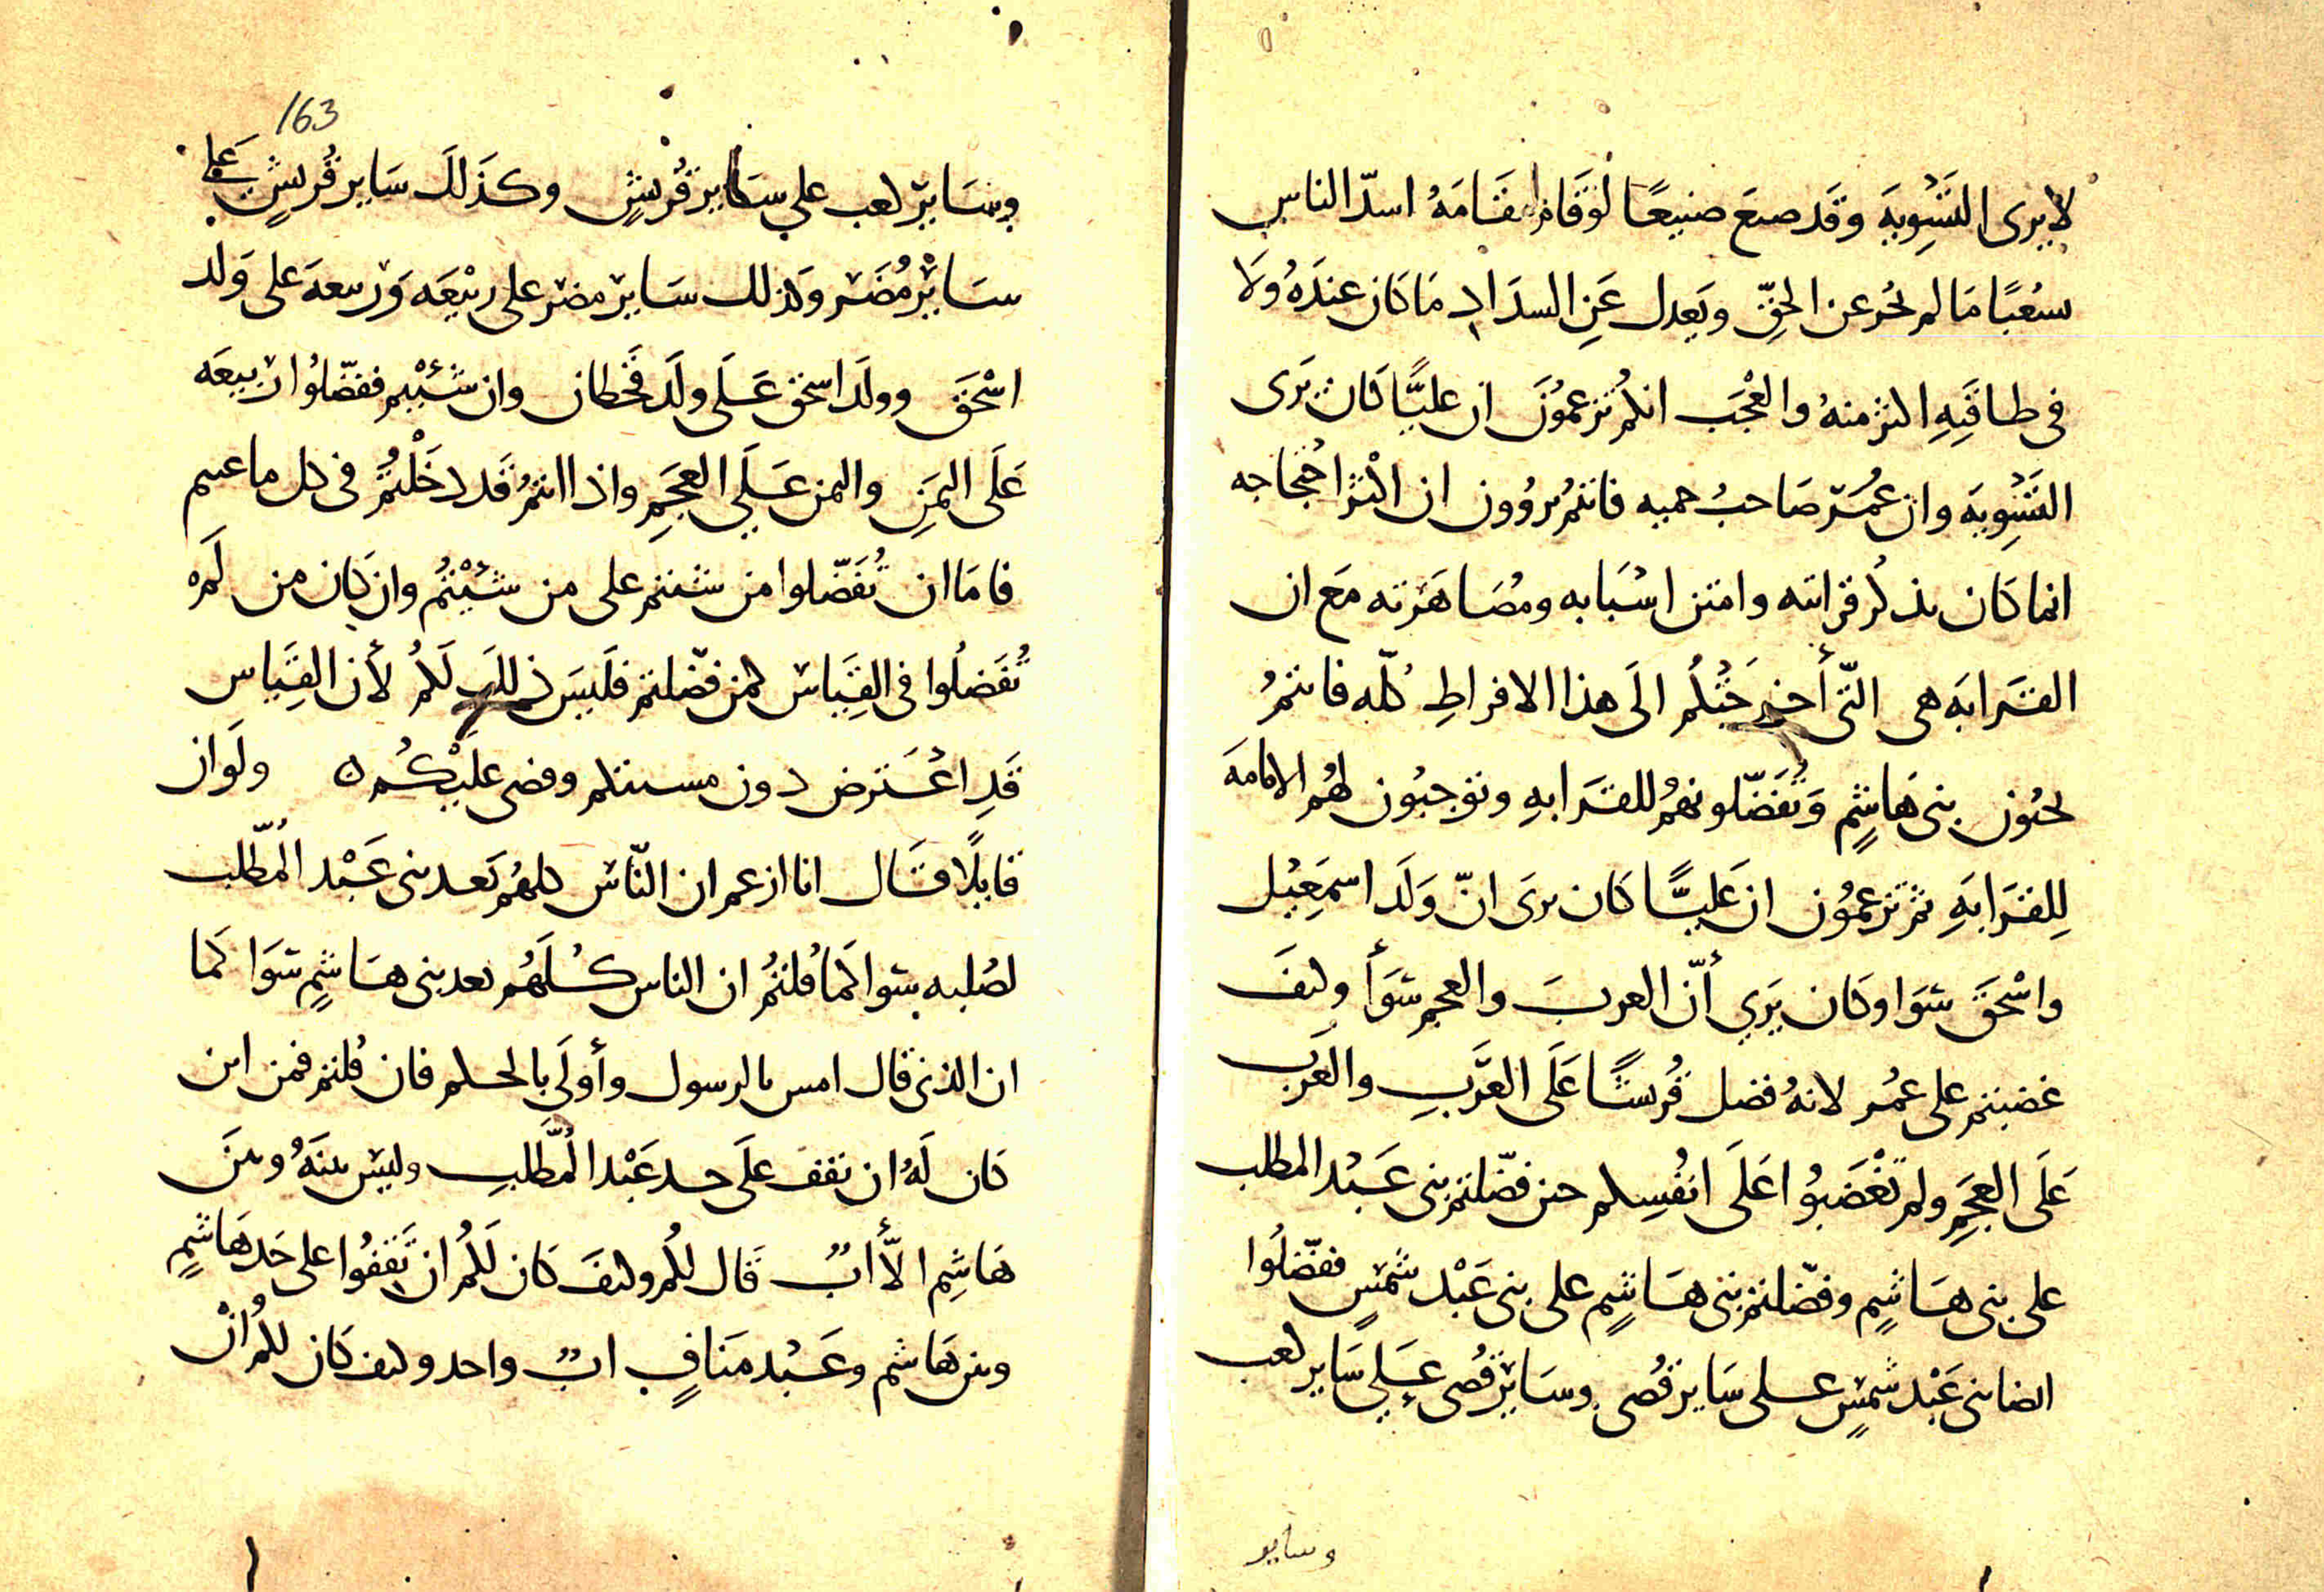 لا يرى التَسْوِيَةَ وقد صنعَ صنيعًا لو قام مقامَهُ اشدّ الناس
شغبًا ما لم يجُر عن الحقّ ويعدل عَنِ السدادِ ما كان عندَهُ ولا
فى طاقتِهِ اكثر منهُ والعجَب انكم تزعمُونَ ان عليًّا كان يَرى
التَسْوِيَة وان عُمَر صَاحبُ حميه فانتم تروُون ان اكثر احتجاجه
انما كَان يذكُر قرابته وامتن اسْبَابه ومُصَاهَرته مَع ان
القَرابَه هى التّى أخرجَتْكُم الَى هذا الافراطِ كُلّه فانتمُ
تحبّون بنى هَاشِمٍ وَتُفَضّلونهُم للقَرابهِ وتوجبُون لهُم الامامَه
لِلقَرابَهِ ثم تزعمُون ان عَليًّا كان يرىَ انّ وَلَد اسمَعِيْل
واسْحَقَ سَوَا وكَان يَرِي أنّ العربَ والعجم سَوَأ وكيفَ
غضبتم على عمُر لانهُ فضل قُريشًا عَلَى العَرَبِ والعَرَب
عَلَى العجَمِ ولم تغْضَبُوا عَلَى انفُسِكم حين فضّلتم بنى عَبْد المطلب
على بنى هَاشِمٍ وفضّلتم بنى هَاشِمٍ على بنى عَبْد شَمْسٍ ففضّلُوا
ايضا بنى عَبْد شمْسٍ على سَاير قُصى وسَايْر قُصى عَلي سَاير كعب
وساير
163
وسَايْر كعب علي سَاير قُريشٍ وكذَلكَ سَاير قُريشٍ عَلى
سَايْر مُضَر وكذلك سَاير مضر على ربيْعَه وَربيعهَ على وَلد
اسْحَقَ وولَد اسحق عَلَى ولَد قَحطان وان شئْتم ففضّلُوا ربيعَه
عَلَى اليمَنِ واليمن عَلَي العجَمِ واذا انتمُ قَد دخَلْتُمْ فى كل ما عبتم
فامَا ان تُفَضّلوا من شئتم على من شئْتُم وان كان من لَم
تُفَضلُوا فى القِيَاس كمن فضّلتم فلَيسَ ذلكَ لكُم لأن القِيَاس
قَدِ اعْتَرض دون مسئلتكم وقضى عليْكُم ه ولَو ان
قايلًا قَال انا ازعم ان النّاس كلهُم بَعد بنى عَبْد المُطّلب
لصُلبه سَوا كمَا قُلتمُ ان الناس كُلَهُم بعد بنى هَاشِمٍ سَوَا كَما
ان الذى قال امس بالرسول وأولَى بالحكم فان قُلتم فمن اين
كان لَهُ ان نقف علَى حد عَبْد المُطّلبِ وليس بينَهُ وبينَ
هَاشِم الاّ أبٌ قَال لكُم وكيفَ كان لَكُم ان تَقفُوا على حَد هَاشمٍ
وبين هَاشم وعَبْد مَنَافٍ ابٌ واحد وكيف كَان لكُم انْ